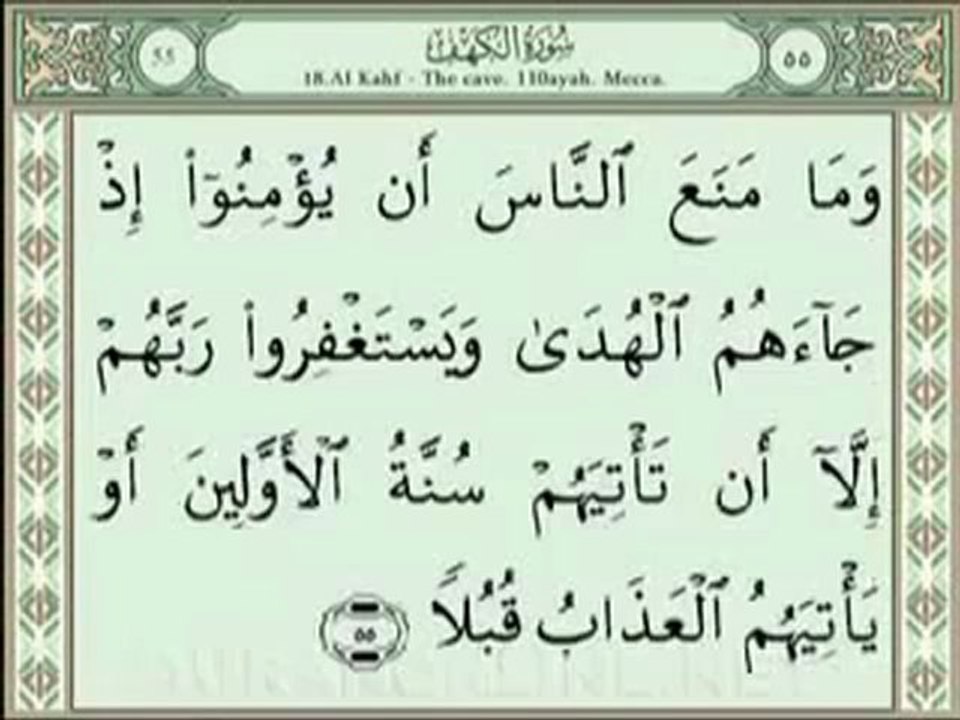 55 سُورَةُ الكَهْفِ ٥٥
18.Al Kahf - The cave. 110ayah. Mecca.
وَمَا مَنَعَ ٱلنَّاسَ أَن يُؤْمِنُوٓا۟ إِذْ
جَآءَهُمُ ٱلْهُدَىٰ وَيَسْتَغْفِرُوا۟ رَبَّهُمْ
إِلَّآ أَن تَأْتِيَهُمْ سُنَّةُ ٱلْأَوَّلِينَ أَوْ
يَأْتِيَهُمُ ٱلْعَذَابُ قُبُلًا ٥٥